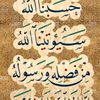 حَسْبُنَا اللَّهُ
سَيُؤْتِينَا اللَّهُ
مِنْ فَضْلِهِ وَرَسُولُهُ